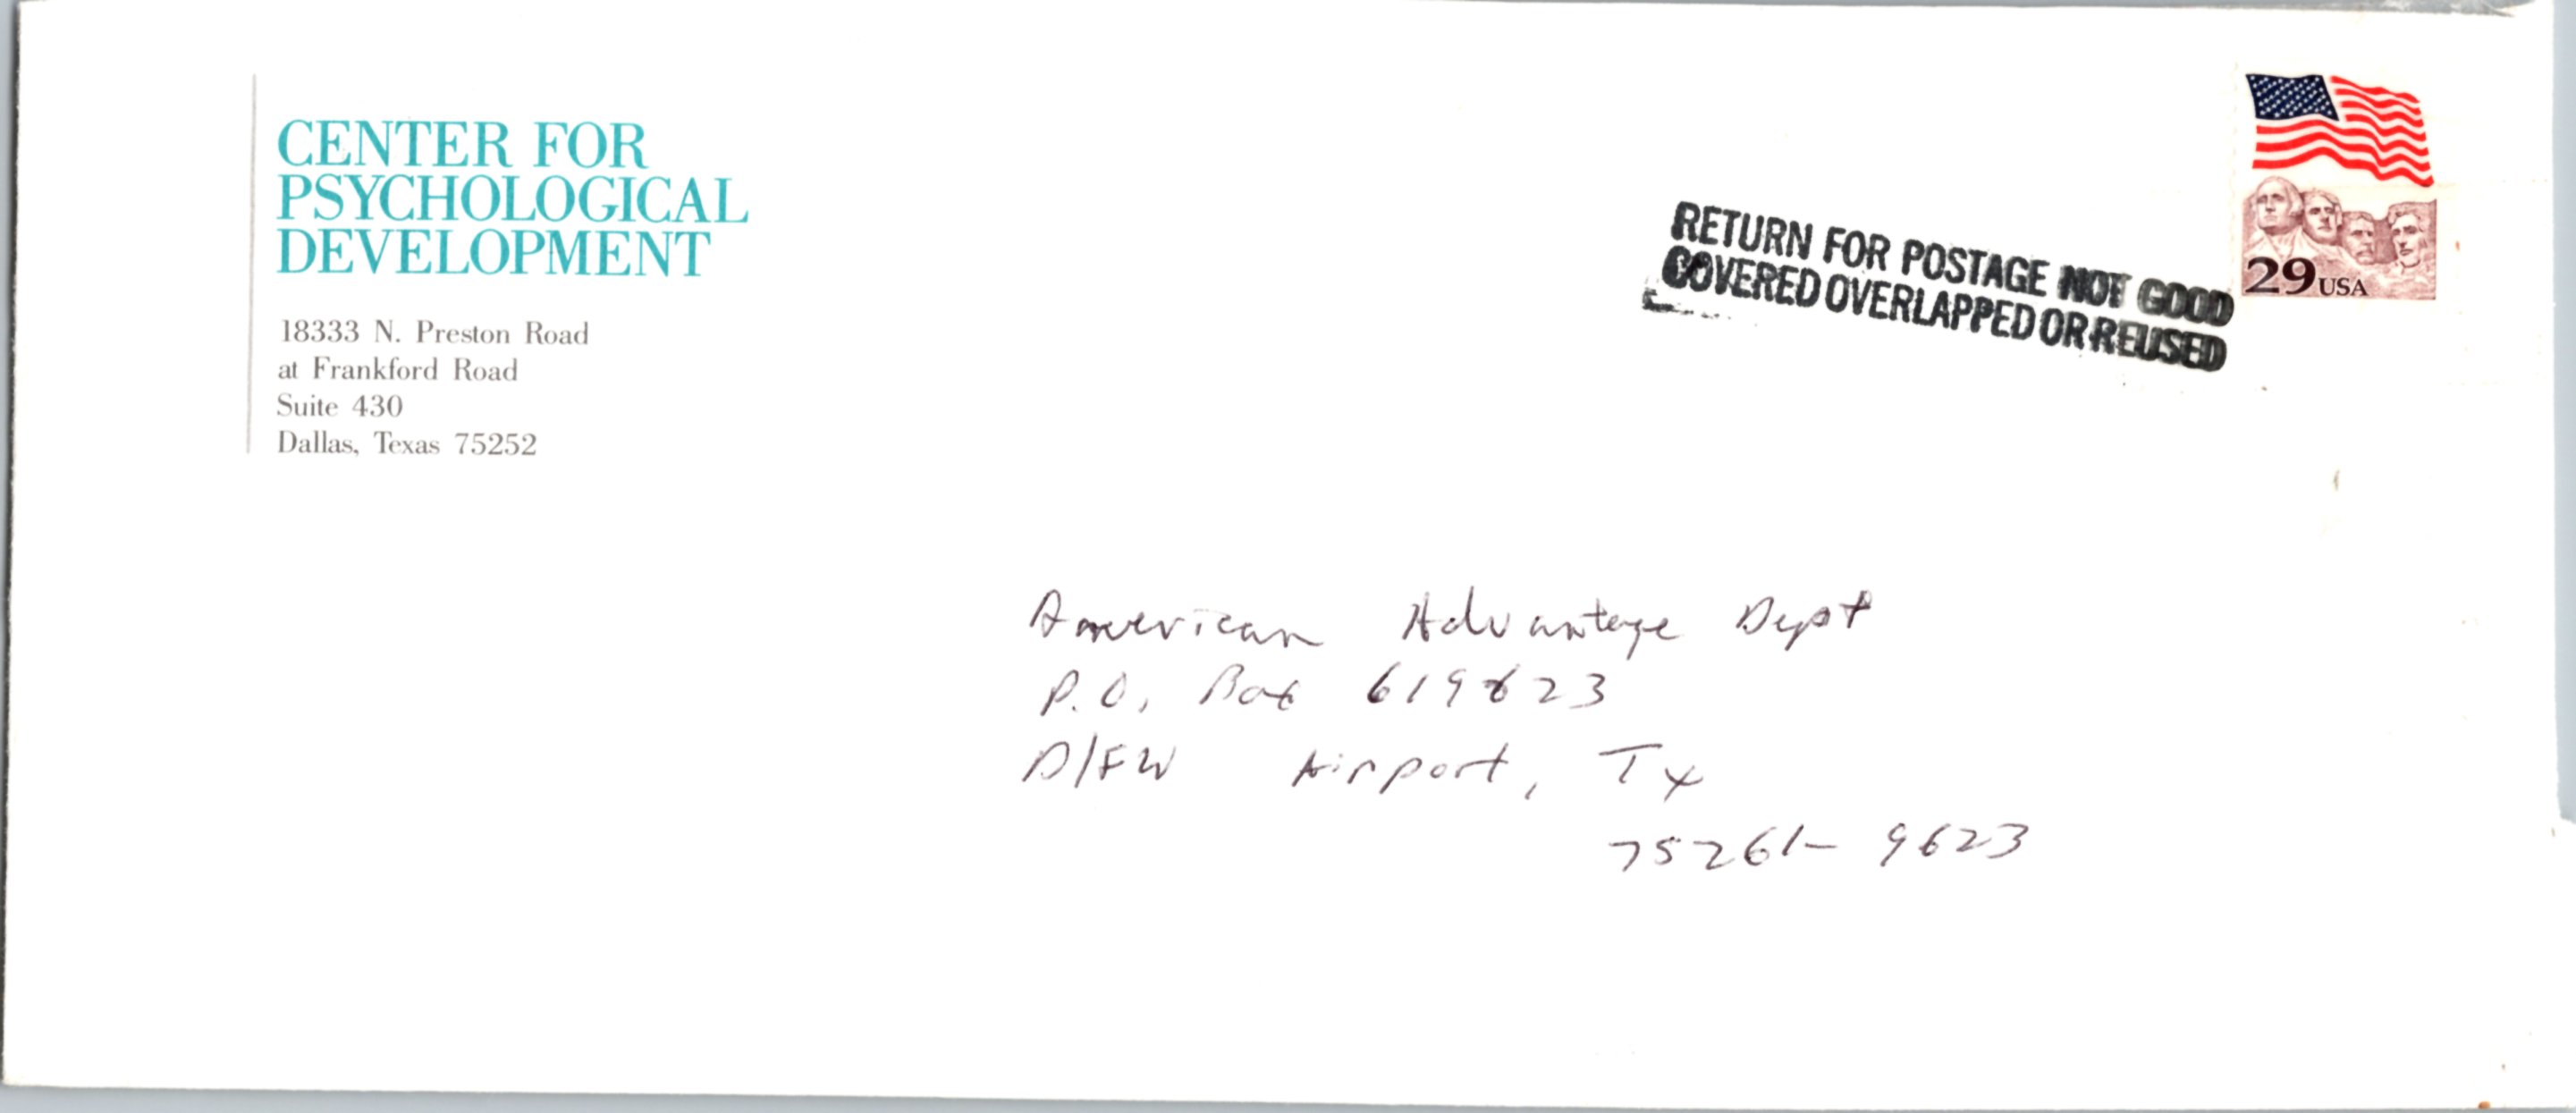 CENTER FOR
PSYCHOLOGICAL
DEVELOPMENT
18333 N. Preston Road
at Frankford Road
Suite 430
Dallas, Texas 75252
RETURN FOR POSTAGE NOT GOOD
COVERED OVERLAPPED OR REUSED
29 USA
American Advantage Dept
P.O. Box 619623
D/FW Airport, Tx
75261-9623